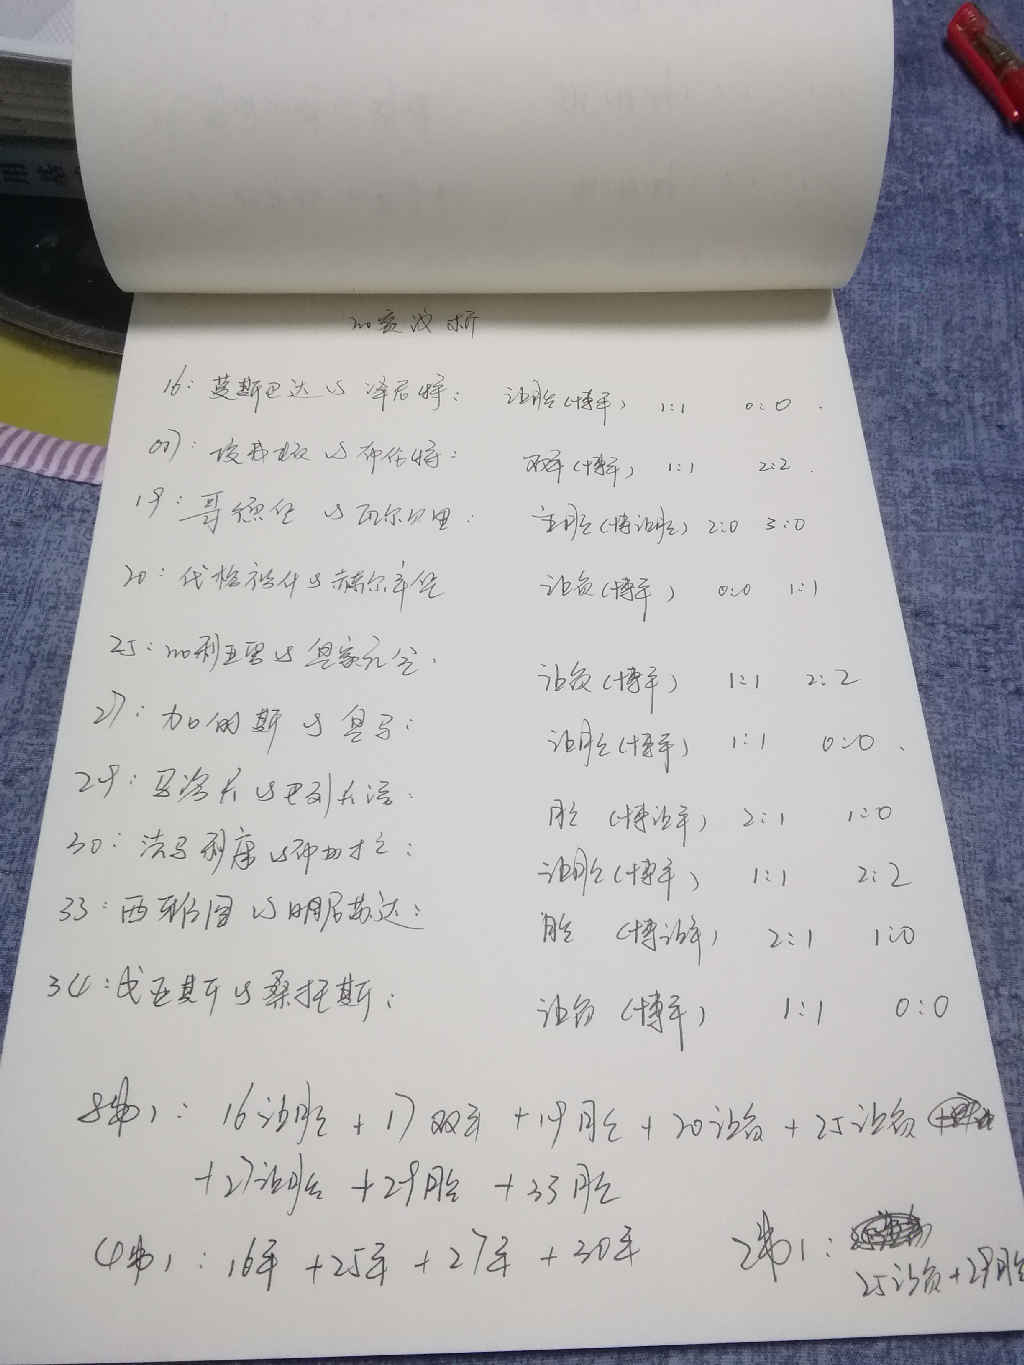 16: 莫斯巴达 VS 泽尼特: 让胜(博平) 1:1 0:0.
007: 埃弗顿 VS 布伦特: 双平(博平) 1:1 2:2.
19: 哥德堡 VS 瓦尔贝里: 主胜(博让胜) 2:0 3:0
20: 代格福什 VS 赫尔辛堡 让负(博平) 0:0 1:1
25: VS 皇家 让负(博平) 1:1 2:2
27: 加的斯 VS 皇马: 让胜(博平) 1:1 0:0.
29: VS 胜 (博让平) 2:1 1:0
30: 法马利康 VS : 让胜(博平) 1:1 2:2
33: 西雅图 VS 明尼苏达: 胜 (博让平) 2:1 1:0
34: 戈亚斯 VS 桑托斯: 让负 (博平) 1:1 0:0
8串1: 16让胜+17双平+19胜+20让负+25让负
+27让胜+29胜+33胜
4串1: 16平+25平+27平+30平 2串1:
25让负+29胜